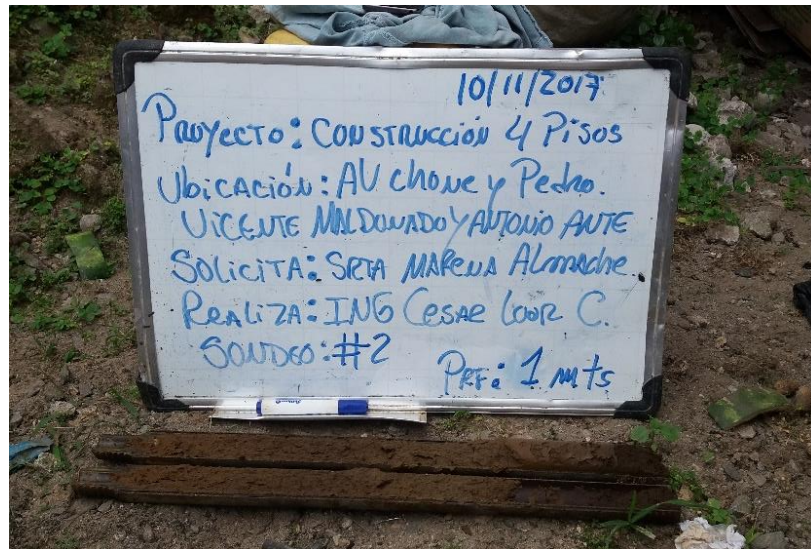 10/11/2017
PROYECTO: CONSTRUCCIÓN 4 PISOS
UBICACIÓN: AV CHONE Y PEDRO.
VICENTE MALDONADO Y ANTONIO ANTE
SOLICITA: SRTA MARENA ALMACHE.
REALIZA: ING CESAR LOOR C.
SONDEO: #2
PRF: 1 mts